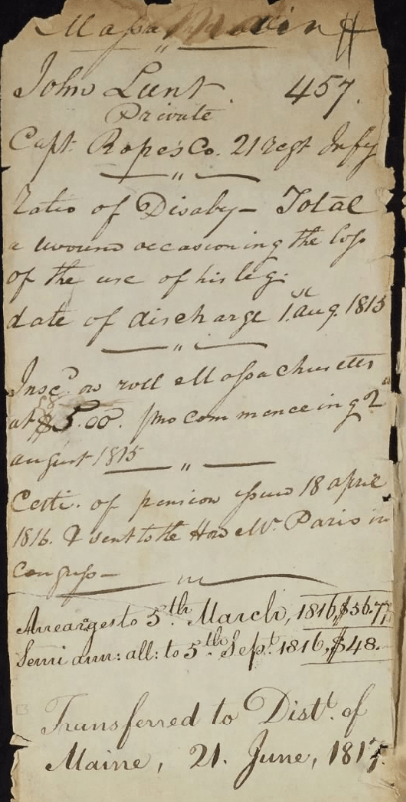 Massa
John Lunt 457.
Private
Capt. Ropes Co. 21 regt Infy
Ratio of Disaby - Total
a wound occasioning the loss
of the use of his leg.
date of discharge 1. aug. 1815
Inscd. on roll Massachusetts
at $5.00. pmo commenceing 2d
august 1815
Certi. of pension issued 18 april
1816. & sent to the Hon Mr. Paris in
Congress -
Arrearges to 5th March, 1816, $56.77,
Semi ann: all: to 5th Sept. 1816, $48.
Transferred to Distt. of
Maine, 21. June, 1817.